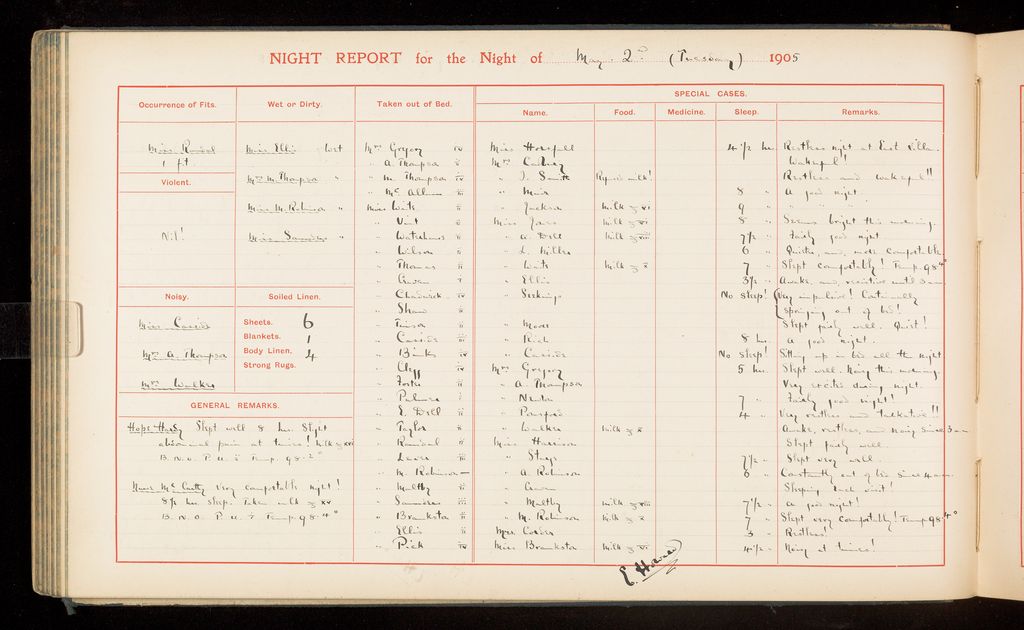 NIGHT REPORT for the Night of May 2nd (Tuesday) 1905
Occurrence of Fits.
Miss Randal
1 fit.
Violent.
Nil!
Noisy.
Miss Cassids
Mrs A. Thompson
Mrs Walker
Wet or Dirty.
Miss Ellis Wet
Mrs M. Thompson "
Miss M. Robinson "
Miss Saunders "
Soiled Linen.
Sheets. 6
Blankets. 1
Body Linen. 4
Strong Rugs.
GENERAL REMARKS.
Hope Hardy Slept well 8 hrs. Slight
abdominal pain at times! Milk
B.N.O. P.U. Temp. 98.2°
Nurse McCarthy Very comfortable night!
8½ hrs sleep. Taken milk
B.N.O. P.U. Temp. 98.4°
Taken out of Bed.
Mrs Gregory iv
" A. Thompson ii
" M. Thompson iv
" McAllum iii
Miss Waite ii
" Vint ii
" Waterhouse ii
" Wilson ii
" Thomas ii
" Gwen
" Chadwick iv
" Shaw ii
" iii
" Cassids iii
" Binks iv
" Clegg ii
" Foster ii
" Palmer ii
" E. Dell ii
" Taylor ii
" Randal ii
" ii
" M. Robinson —
" Maltby ii
" Saunders iii
" Brankston ii
" Ellis ii
" Pick iv
SPECIAL CASES.
Name. Food. Medicine. Sleep. Remarks.
Miss Horsfall 4½ hrs Restless night at East Villa.
Mrs Wakeful!
" J. Smith Refused milk! Restless and wakeful!!
" Muir 8 " A good night.
" Jackson Milk ℥vi 9 " " " "
Miss Milk ℥vi 8 " Seems bright this morning.
" A. Dell Milk ℥viii 7½ " Fairly good night
" L. Miller 6 " Quieter, and more comfortable.
" Waite Milk ℥x 7 " Slept comfortably! Temp. 98.4°
" Ellis 3½ " Awake, and until 3 am
" No sleep! Very impulsive! Continually
springing out of bed!
" Moore Slept fairly well. Quiet!
" Pick 8 hrs A good night.
" Cassids No sleep! Sitting up in bed all the night
Mrs Gregory 5 hrs. Slept well. Noisy this morning.
" A. Thompson Very excited during night.
" 7 " Fairly good night!
" 4 " Very restless and talkative!!
" Walker Milk ℥x Awake, restless, and noisy since 3 am
Miss Harrison Slept fairly well.
" 7½ " Slept very well.
" A. Robinson 6 " Constantly out of bed since 4 am.
" Gwen Sleeping each visit!
" Maltby Milk ℥viii 7½ " A good night!
" M. Robinson Milk ℥x 7 " Slept very comfortably! Temp. 98.4°
Mrs 3 " Restless!
Miss Brankston Milk ℥vi 4½ " Noisy at times!